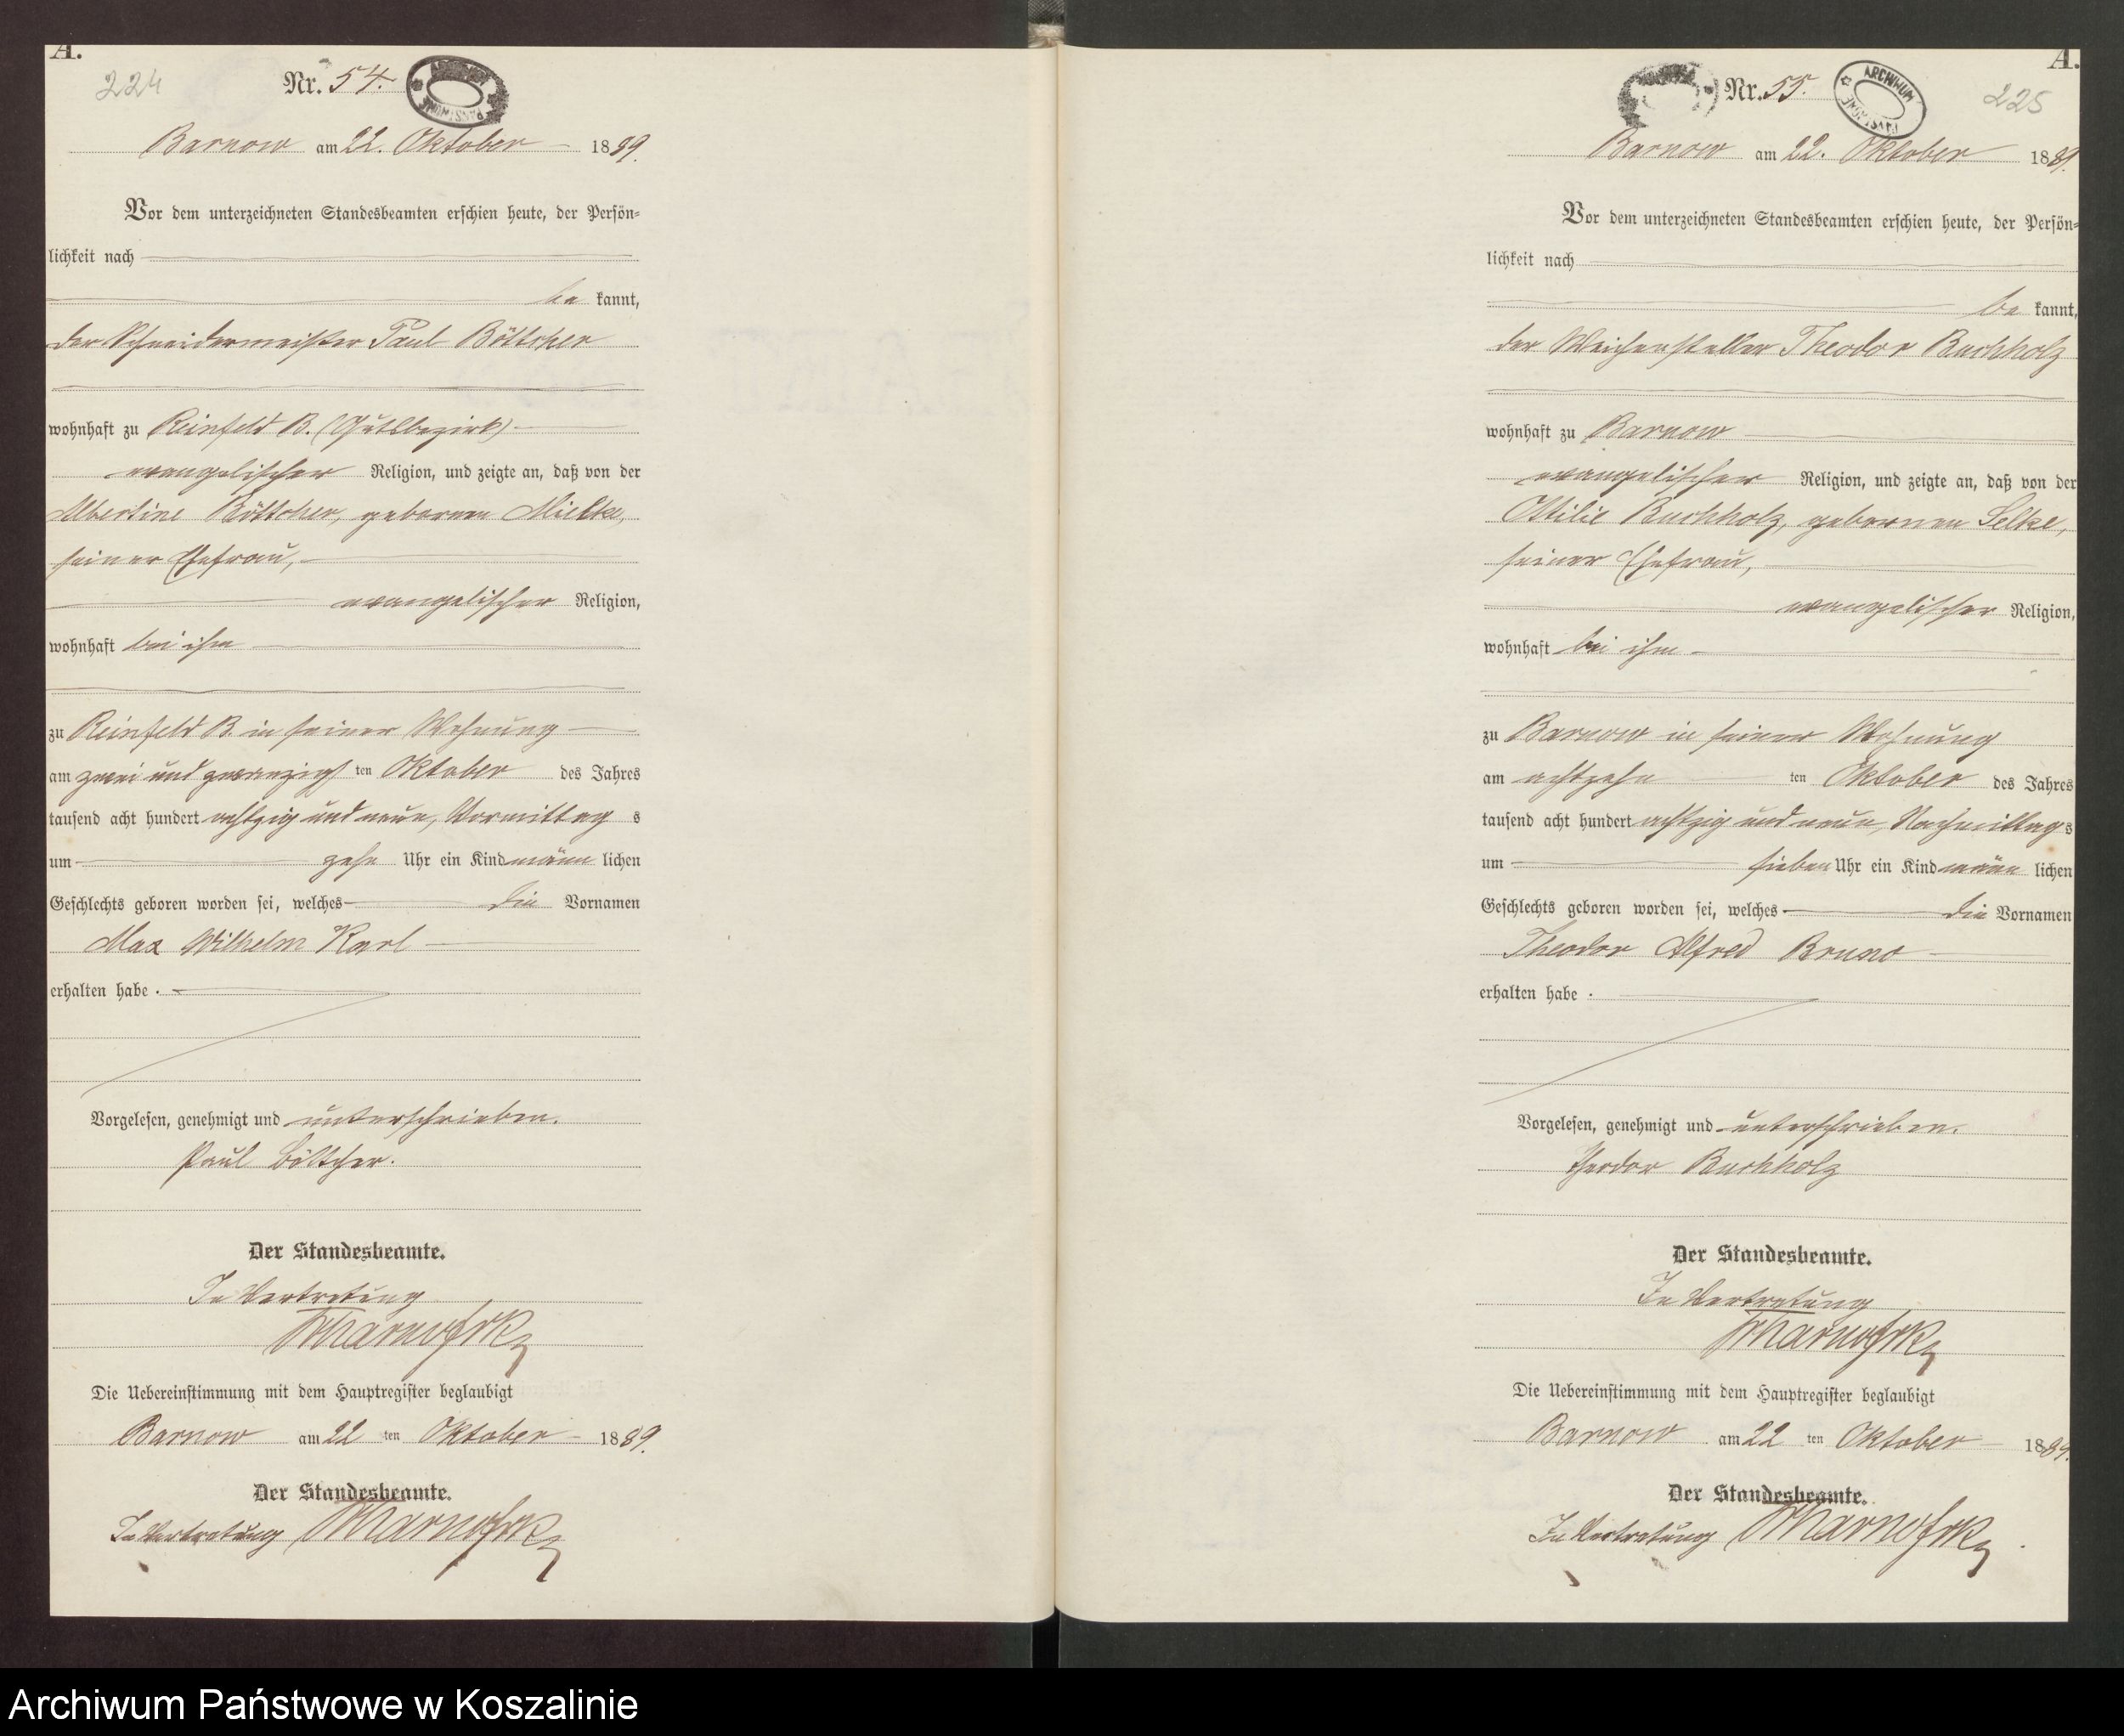 A.
224
Nr. 54.
ARCHIWUM PAŃSTWOWE
Barnow am 22. Oktober 1889.
Vor dem unterzeichneten Standesbeamten erschien heute, der Persön=
lichkeit nach
be kannt,
der Schneidermeister Paul Böttcher
wohnhaft zu Reinfeld B. (Gutsbezirk)
evangelischer Religion, und zeigte an, daß von der
Albertine Böttcher, geborenen Mielke,
seiner Ehefrau,
evangelischer Religion,
wohnhaft bei ihm
zu Reinfeld B. in seiner Wohnung
am zwei und zwanzigs ten Oktober des Jahres
tausend acht hundert achtzig und neun, Vormittag s
um zehn Uhr ein Kind männ lichen
Geschlechts geboren worden sei, welches die Vornamen
Max Wilhelm Karl
erhalten habe.
Vorgelesen, genehmigt und unterschrieben.
Paul Böttcher.
Der Standesbeamte.
In Vertretung
Die Uebereinstimmung mit dem Hauptregister beglaubigt
Barnow am 22 ten Oktober 1889.
Der Standesbeamte.
In Vertretung
A.
225
Nr. 55.
ARCHIWUM PAŃSTWOWE
Barnow am 22. Oktober 1889.
Vor dem unterzeichneten Standesbeamten erschien heute, der Persön=
lichkeit nach
be kannt,
der Weichensteller Theodor Buchholz
wohnhaft zu Barnow
evangelischer Religion, und zeigte an, daß von der
Ottilie Buchholz, geborenen Selke,
seiner Ehefrau,
evangelischer Religion,
wohnhaft bei ihm
zu Barnow in seiner Wohnung
am achtzehn ten Oktober des Jahres
tausend acht hundert achtzig und neun, Nachmittag s
um sieben Uhr ein Kind männ lichen
Geschlechts geboren worden sei, welches die Vornamen
Theodor Alfred Bruno
erhalten habe.
Vorgelesen, genehmigt und unterschrieben.
Theodor Buchholz
Der Standesbeamte.
In Vertretung
Die Uebereinstimmung mit dem Hauptregister beglaubigt
Barnow am 22 ten Oktober 1889.
Der Standesbeamte.
In Vertretung
Archiwum Państwowe w Koszalinie